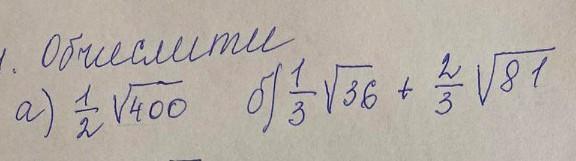 1. Обчислити
а) 1/2 √400 б) 1/3 √36 + 2/3 √81